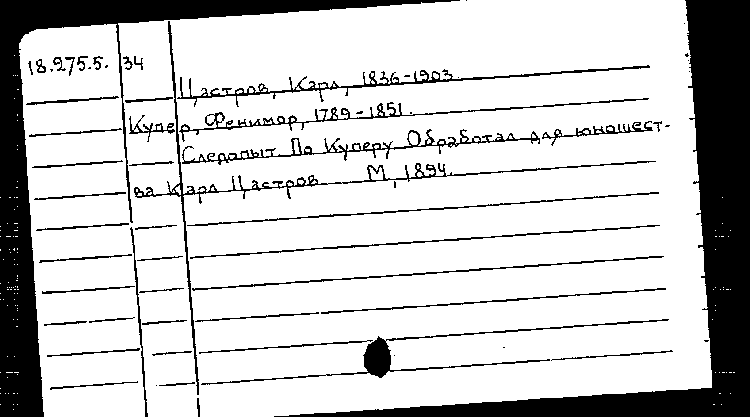 18.275.5. 34
Цастров, Карл, 1836-1903.
Купер, Фенимор, 1789-1851.
Следопыт По Куперу Обработал для юношест-
ва Карл Цастров М, 1894.